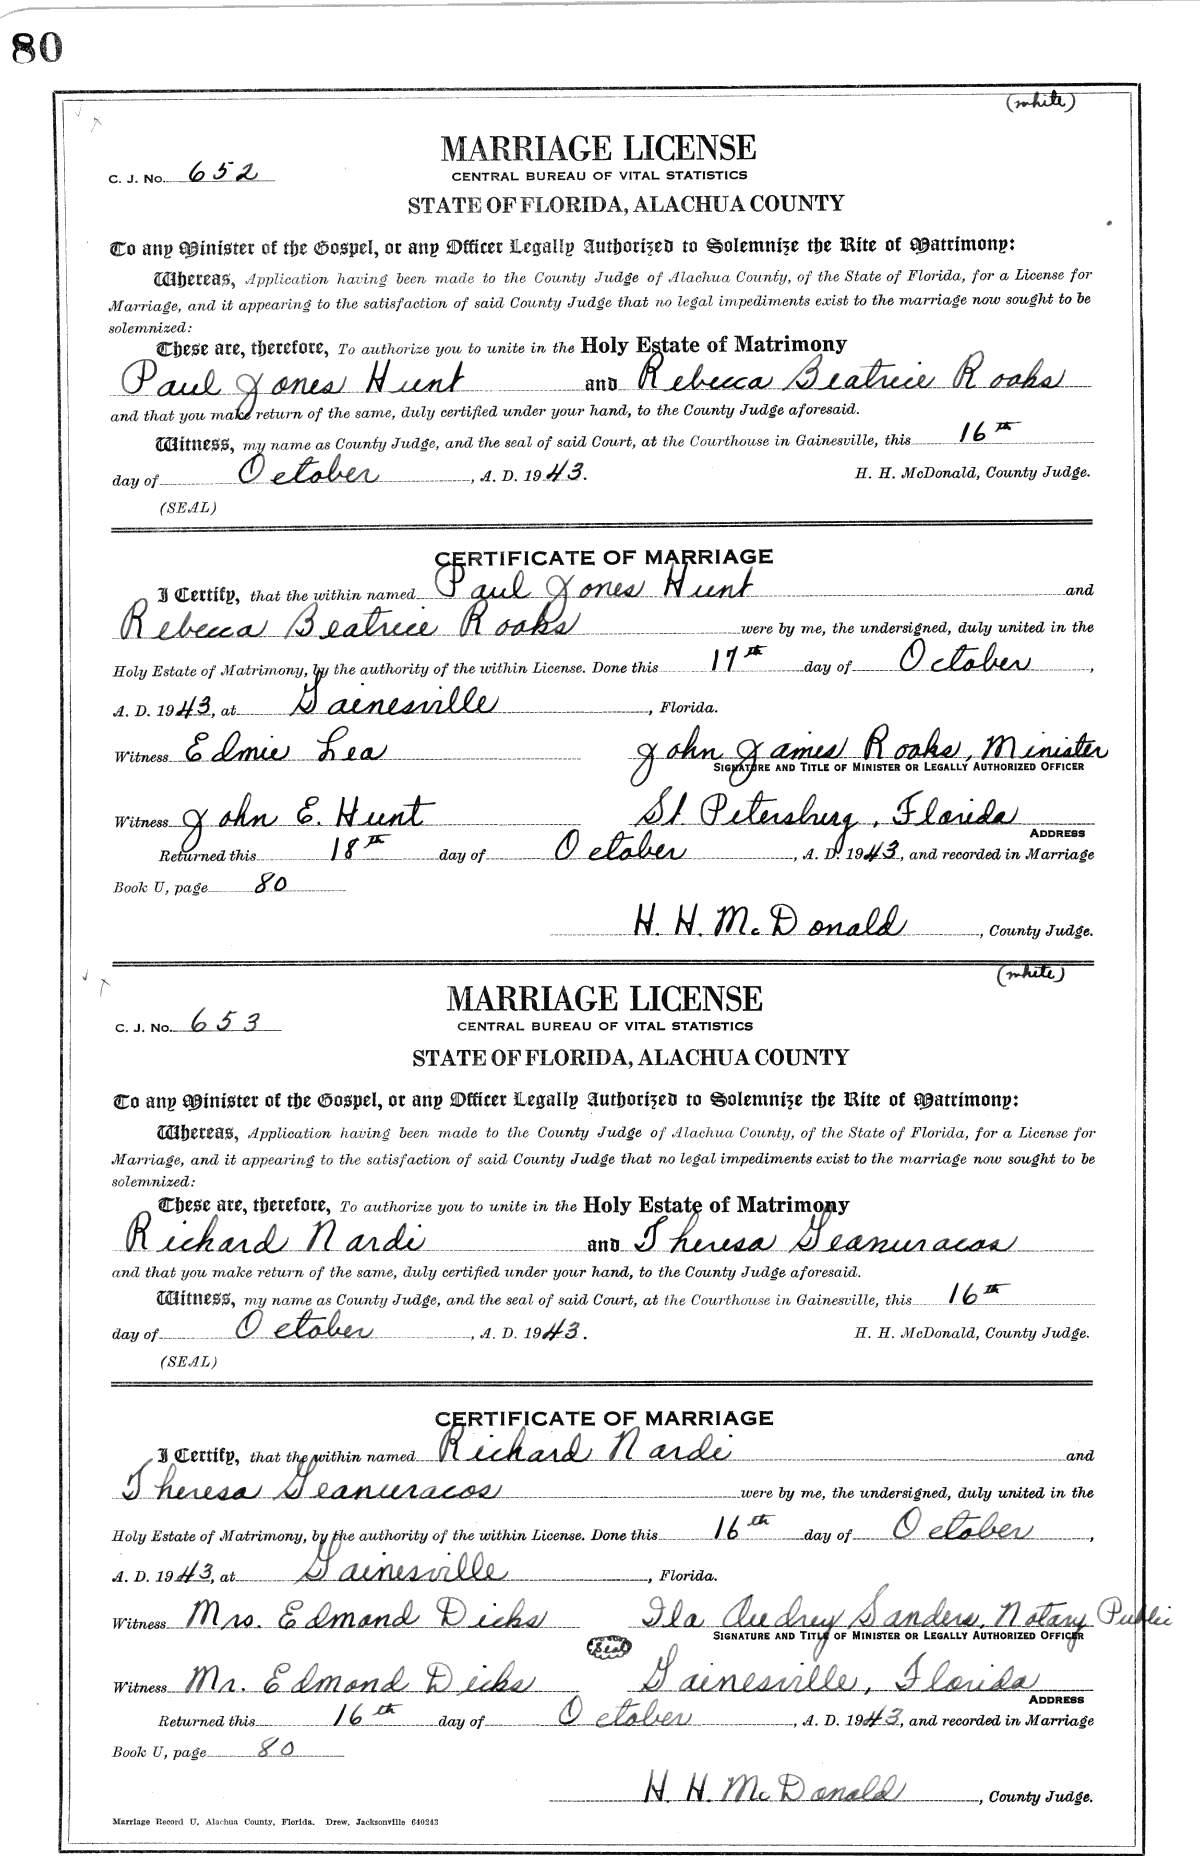 80
(white)
MARRIAGE LICENSE
C. J. No. 652
CENTRAL BUREAU OF VITAL STATISTICS
STATE OF FLORIDA, ALACHUA COUNTY
To any Minister of the Gospel, or any Officer Legally Authorized to Solemnize the Rite of Matrimony:
Whereas, Application having been made to the County Judge of Alachua County, of the State of Florida, for a License for
Marriage, and it appearing to the satisfaction of said County Judge that no legal impediments exist to the marriage now sought to be
solemnized:
These are, therefore, To authorize you to unite in the Holy Estate of Matrimony
Paul Jones Hunt and Rebecca Beatrice Roaks
and that you make return of the same, duly certified under your hand, to the County Judge aforesaid.
Witness, my name as County Judge, and the seal of said Court, at the Courthouse in Gainesville, this 16th
day of October, A. D. 1943. H. H. McDonald, County Judge.
(SEAL)
CERTIFICATE OF MARRIAGE
I Certify, that the within named Paul Jones Hunt and
Rebecca Beatrice Roaks were by me, the undersigned, duly united in the
Holy Estate of Matrimony, by the authority of the within License. Done this 17th day of October,
A. D. 1943, at Gainesville, Florida.
Witness Edmie Lea John James Roaks, Minister
SIGNATURE AND TITLE OF MINISTER OR LEGALLY AUTHORIZED OFFICER
Witness John E. Hunt St Petersburg, Florida
ADDRESS
Returned this 18th day of October, A. D. 1943, and recorded in Marriage
Book U, page 80
H. H. McDonald, County Judge.
(white)
MARRIAGE LICENSE
C. J. No. 653
CENTRAL BUREAU OF VITAL STATISTICS
STATE OF FLORIDA, ALACHUA COUNTY
To any Minister of the Gospel, or any Officer Legally Authorized to Solemnize the Rite of Matrimony:
Whereas, Application having been made to the County Judge of Alachua County, of the State of Florida, for a License for
Marriage, and it appearing to the satisfaction of said County Judge that no legal impediments exist to the marriage now sought to be
solemnized:
These are, therefore, To authorize you to unite in the Holy Estate of Matrimony
Richard Nardi and Theresa Geanuracos
and that you make return of the same, duly certified under your hand, to the County Judge aforesaid.
Witness, my name as County Judge, and the seal of said Court, at the Courthouse in Gainesville, this 16th
day of October, A. D. 1943. H. H. McDonald, County Judge.
(SEAL)
CERTIFICATE OF MARRIAGE
I Certify, that the within named Richard Nardi and
Theresa Geanuracos were by me, the undersigned, duly united in the
Holy Estate of Matrimony, by the authority of the within License. Done this 16th day of October,
A. D. 1943, at Gainesville, Florida.
Witness Mrs. Edmond Dicks Ila Audrey Sanders, Notary Public
SIGNATURE AND TITLE OF MINISTER OR LEGALLY AUTHORIZED OFFICER
(Seal)
Witness Mr. Edmond Dicks Gainesville, Florida
ADDRESS
Returned this 16th day of October, A. D. 1943, and recorded in Marriage
Book U, page 80
H. H. McDonald, County Judge.
Marriage Record U, Alachua County, Florida. Drew, Jacksonville 640243